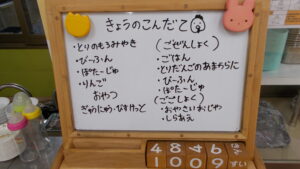 きょうのこんだて
・とりのもろみやき
・びーふん
・ぽたーじゅ
・りんご
おやつ
ぎゅうにゅう・びすけっと
(ごぜんしょく)
・ごはん
・とりだんごのあまずらに
・びーふん
・ぽたーじゅ
(ごごしょく)
・おやさいおじや
・しらあえ
4 8 4 6
1 0 0 9 すい